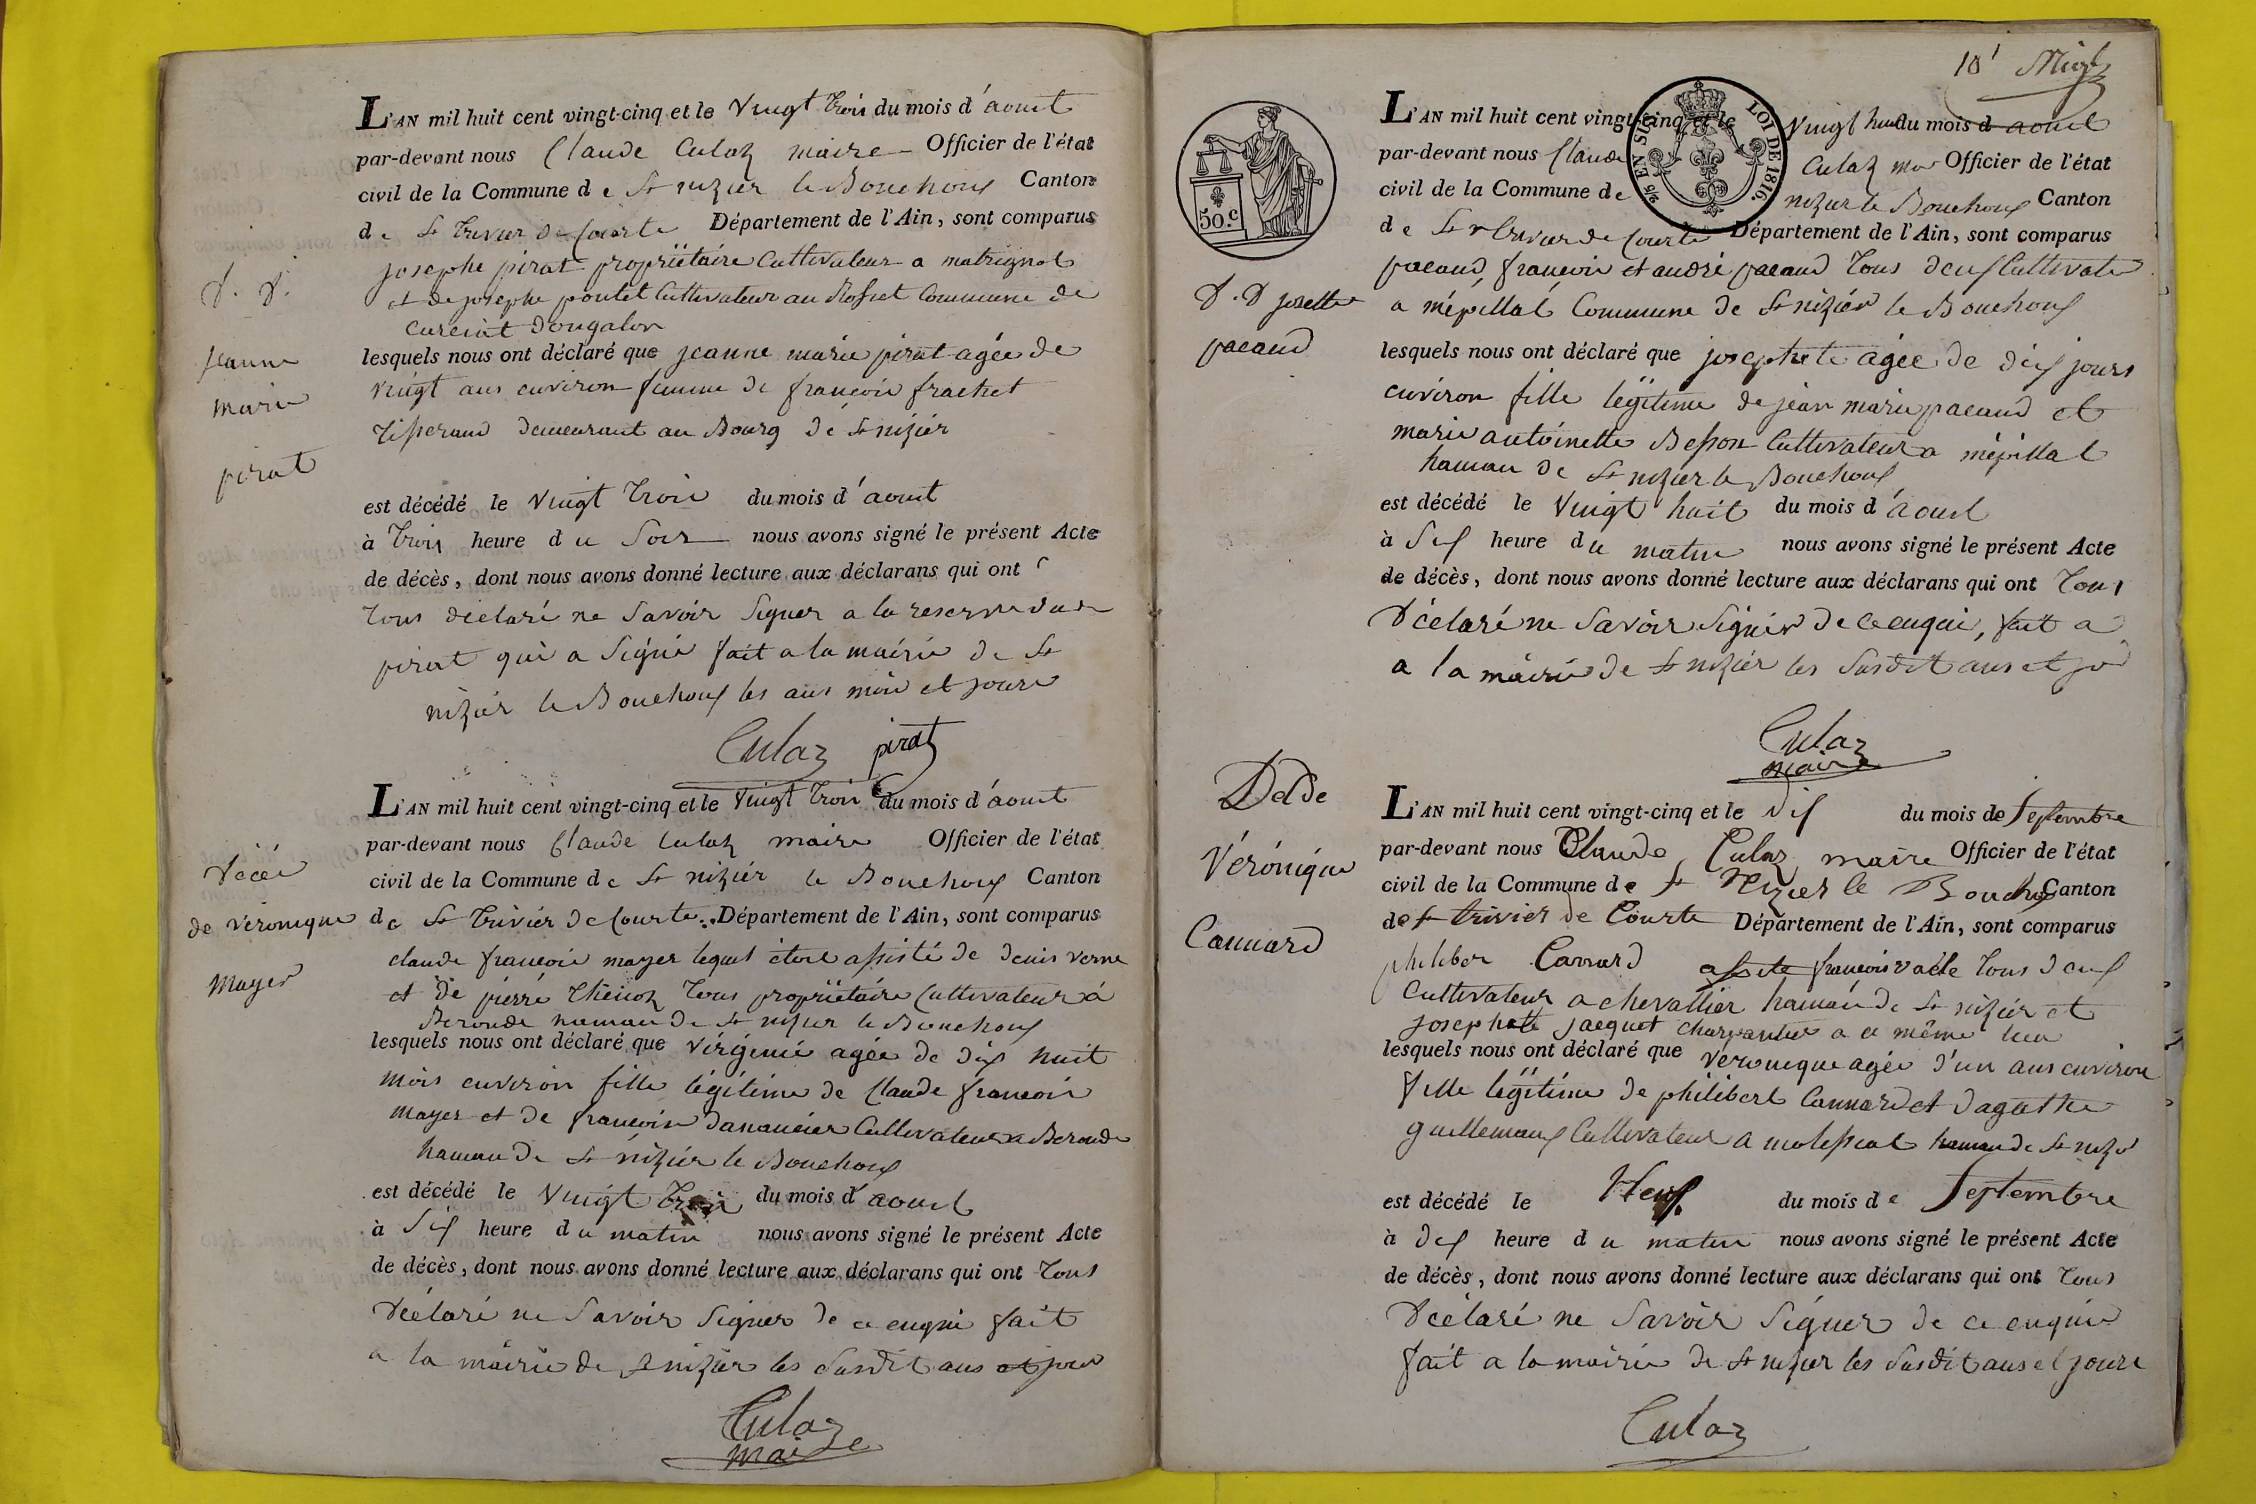 L'AN mil huit cent vingt-cinq et le vingt trois du mois d'aout
par-devant nous Claude Culaz maire Officier de l'état
civil de la Commune de St nizier le Bouchoux Canton
de St Trivier de Courte Département de l'Ain, sont comparus
josephe pirat propriétaire Cultivateur a matrignat
et de josephe pontet Cultivateur au Commune de
curciat dongalon
D. D.
jeanne
marie
pirat
lesquels nous ont déclaré que jeanne marie pirat agée de
vingt ans environ femme de françois frachet
tisserand demeurant au Bourg de St nizier
est décédé le vingt trois du mois d'aout
à trois heure du soir nous avons signé le présent Acte
de décès, dont nous avons donné lecture aux déclarans qui ont
tous déclaré ne savoir signer a la reserve dude
pirat qui a signé fait a la mairie de St
nizier le Bouchoux les ans mois et jours
Culaz pirat
L'AN mil huit cent vingt-cinq et le vingt trois du mois d'aout
par-devant nous Claude Culaz maire Officier de l'état
civil de la Commune de St nizier le Bouchoux Canton
de St Trivier de Courte Département de l'Ain, sont comparus
Décés
de véronique
mayer
claude françois mayer lequel étoit assisté de denis verne
et de pierre thenoz tous propriétaire Cultivateur à
Beronde hamau de St nizier le Bouchoux
lesquels nous ont déclaré que virginie agée de dix huit
mois environ fille légitime de Claude françois
mayer et de françoise danancier Cultivateur a Beronde
hamau de St nizier le Bouchoux
est décédé le vingt trois du mois d'aout
à six heure du matin nous avons signé le présent Acte
de décès, dont nous avons donné lecture aux déclarans qui ont tous
déclaré ne savoir signer de ce enquis fait
a la mairie de St nizier les susdit ans et jour
Culaz
maire
10
50.c
2/5 EN SUS
LOI DE 1816.
L'AN mil huit cent vingt-cinq et le vingt huit du mois d aout
par-devant nous Claude Culaz Officier de l'état
civil de la Commune de nizier le Bouchoux Canton
de St trivier de Courte Département de l'Ain, sont comparus
pacaud françois et andré pacaud tous deux Cultivate
a mépillat Commune de St nizier le Bouchoux
D. D josette
pacaud
lesquels nous ont déclaré que josephete agée de dix jours
environ fille légitime de jean marie pacaud et
marie antoinette Besson Cultivateur a mépillat
hamau de St nizier le Bouchoux
est décédé le vingt huit du mois d'aout
à six heure du matin nous avons signé le présent Acte
de décès, dont nous avons donné lecture aux déclarans qui ont tous
déclaré ne savoir signer de ce enquis, fait a
a la mairie de St nizier les susdit ans et jo
Culaz
maire
L'AN mil huit cent vingt-cinq et le dix du mois de septembre
par-devant nous Claude Culaz maire Officier de l'état
civil de la Commune de St Nizier le Bouchoux Canton
de St trivier de Courte Département de l'Ain, sont comparus
D de
Véronique
Cannard
philiber Canard françois vaile tous deux
Cultivateur a chevallier hamau de St nizier et
josephete jacquet charpantier a ce même lieu
lesquels nous ont déclaré que veronique agée d'un ans environ
fille légitime de philibert Cannard et dagathe
guillemaux Cultivateur a molissiat hamau de St nizi
est décédé le Neuf du mois de septembre
à dix heure du matin nous avons signé le présent Acte
de décès, dont nous avons donné lecture aux déclarans qui ont tous
déclaré ne savoir signer de ce enquis
fait a la mairie de St nizier les susdit ans et jours
Culaz